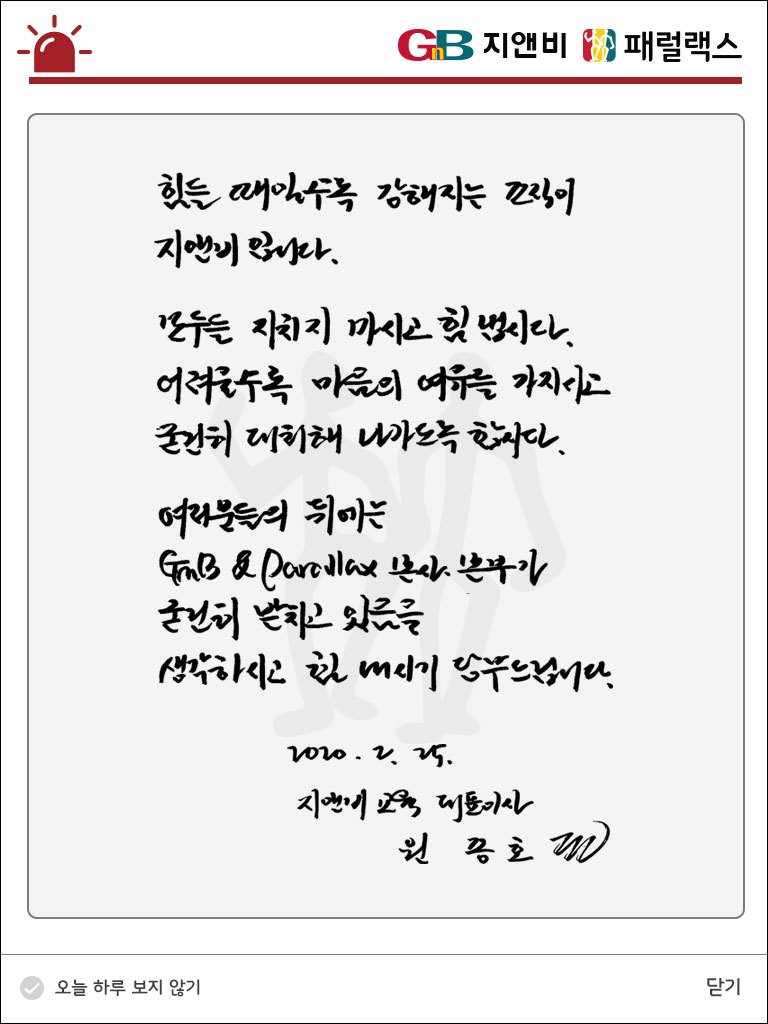 GnB 지앤비 패럴랙스
힘들 때일수록 강해지는 조직이
지앤비입니다.
모두들 지치지 마시고 힘 냅시다.
어려울수록 마음의 여유를 가지시고
굳건히 대처해 나가도록 합시다.
여러분들의 뒤에는
GnB & Parallax 본사. 본부가
굳건히 받치고 있음을
생각하시고 힘 내시기 당부드립니다.
2020. 2. 25.
지앤비교육 대표이사
원 호
오늘 하루 보지 않기
닫기